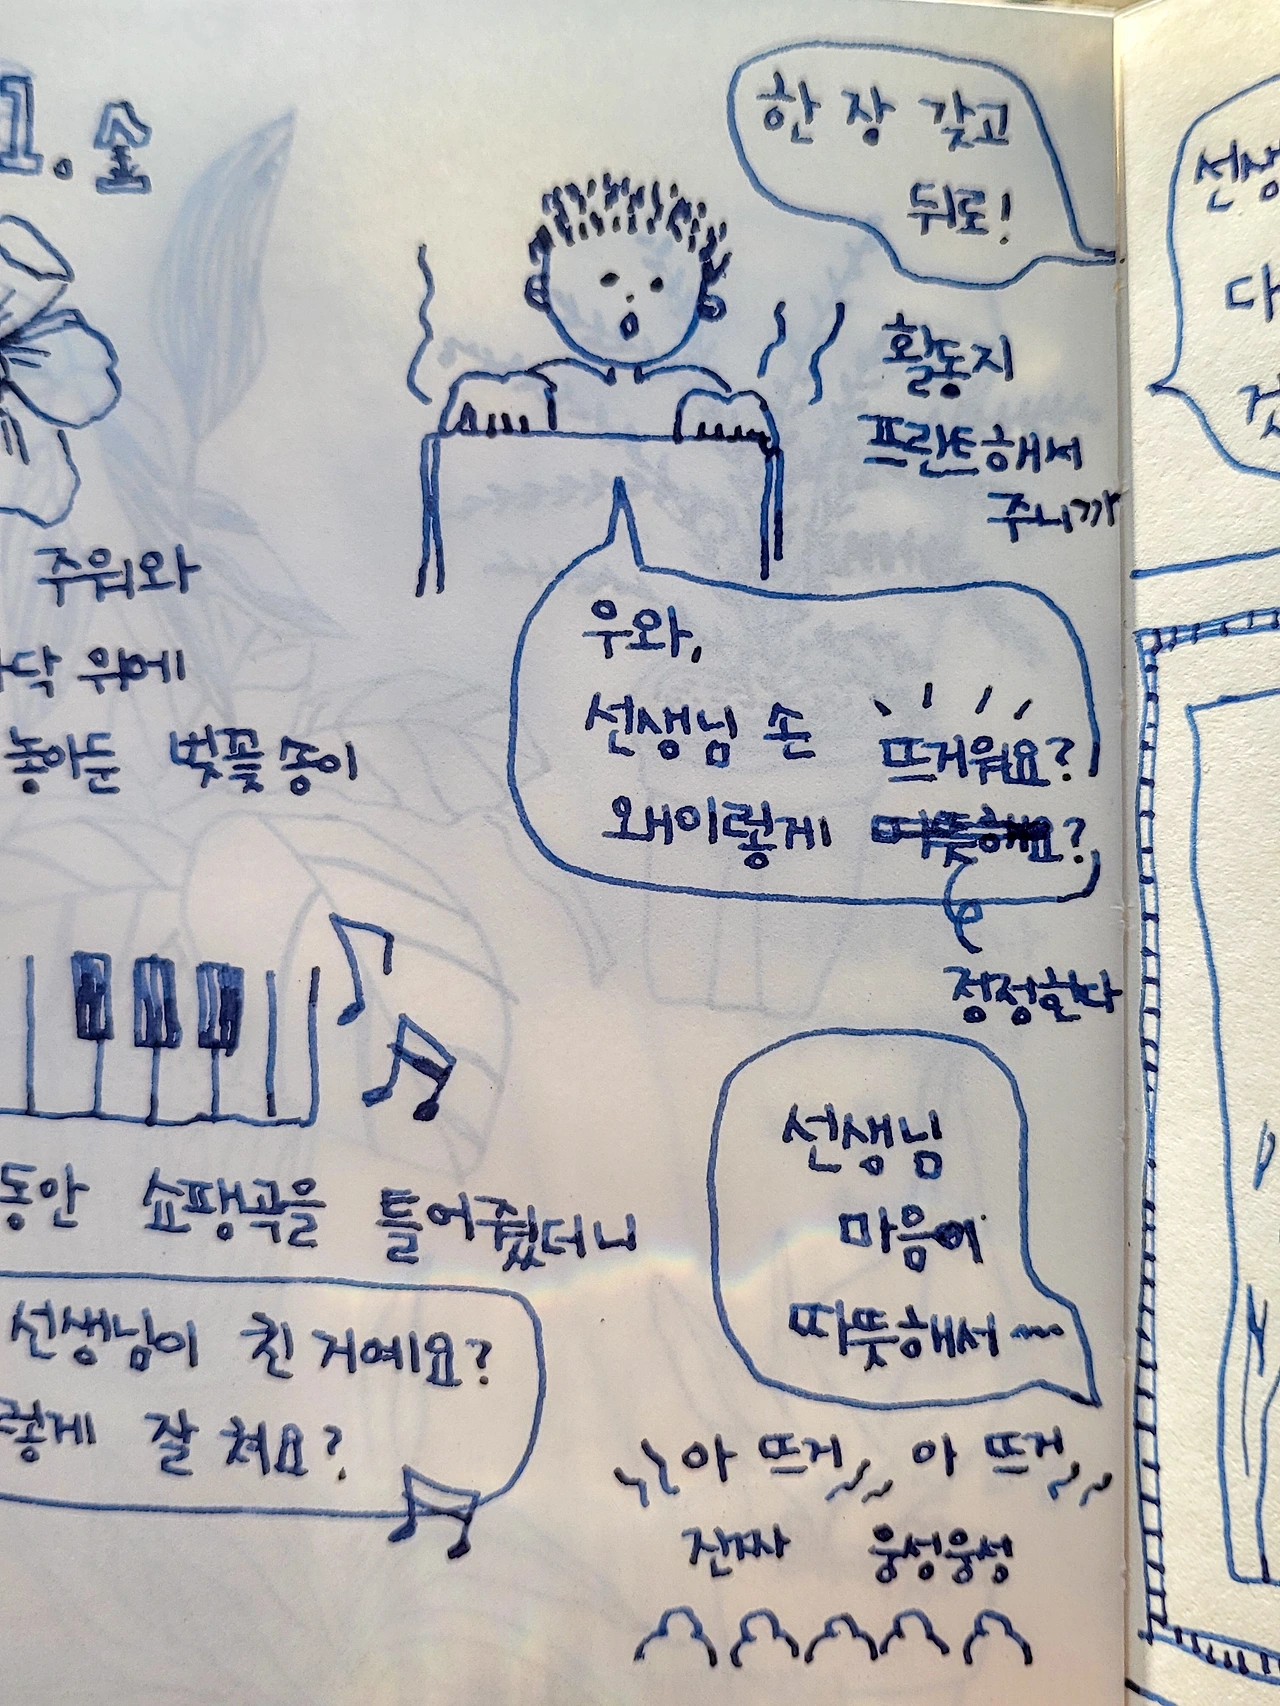 1. 송
한 장 갖고
뒤로!
활동지
프린트해서
주니까
주워와
닥 위에
놓아둔 벚꽃 송이
우와,
선생님 손 뜨거워요?
왜이렇게 따뜻해요?
정정한다
동안 쇼팽곡을 틀어줬더니
선생님이 친 거예요?
렇게 잘 쳐요?
선생님
마음이
따뜻해서~
아 뜨거 아 뜨거
진짜 웅성웅성
선생
다